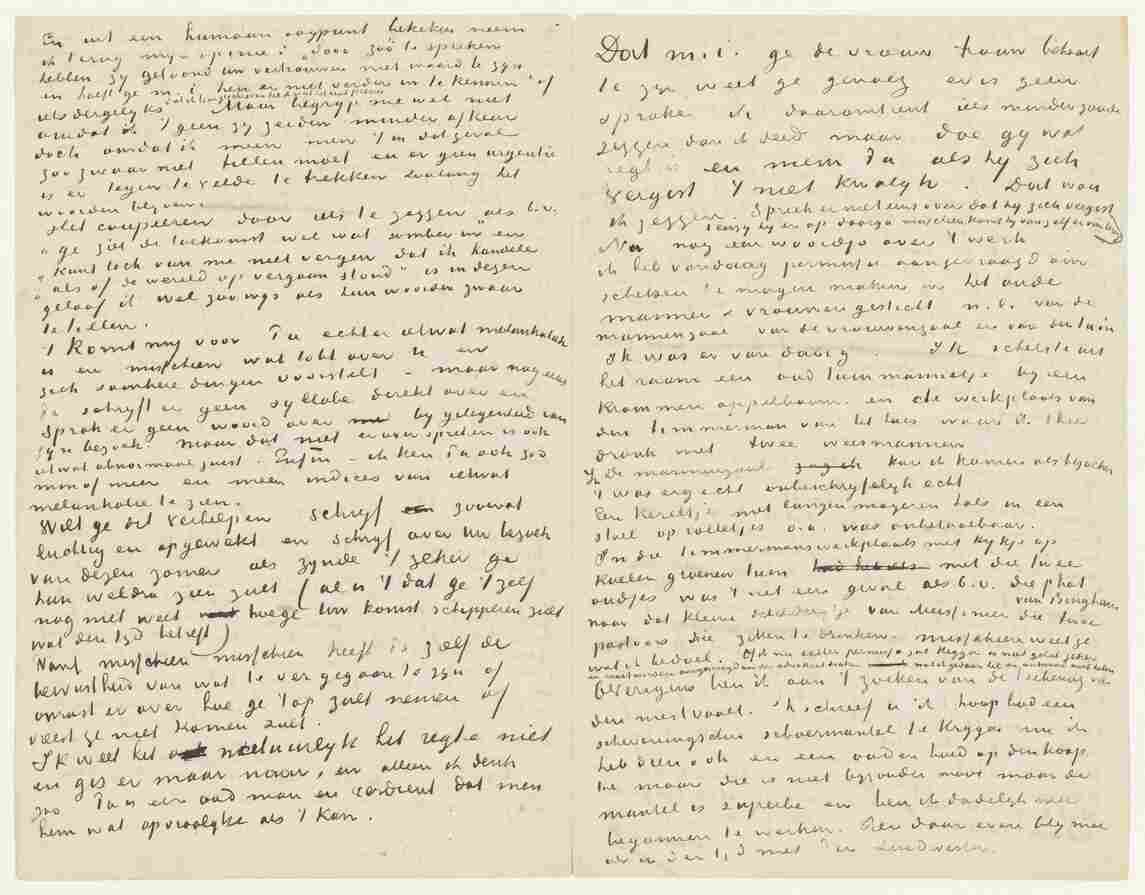 En uit een humaan oogpunt bekeken neem
ik terug mijn opinie: "door zoo te spreken
hebben zy getoond uw vertrouwen niet waard te zyn
en hoeft ge m.i. hen er niet verder in te kennen" of
iets dergelyks. Maar begryp me wel niet
omdat ik 't geen zy zeiden minder afkeur
doch omdat ik meen men 't in dat geval
zoo zwaar niet tillen moet en er geen urgentie
is er tegen te velde te trekken zoolang het
woorden blyven.
Het couperen door iets te zeggen "als b.v.
"ge ziet de toekomst wel wat somber in en
"kunt toch van me niet vergen dat ik handele
"als of de wereld op vergaan stond" is in dezen
geloof ik wel zoo wys als hun woorden zwaar
te tillen.
't Komt my voor Pa echter ietwat melankoliek
is en misschien wat tobt over U en
zich sombere dingen voorstelt - maar nog eens
Pa schryft er geen syllabe direkt over en
sprak er geen woord over by gelegenheid van
zyn bezoek. Maar dat niet er over spreken is ook
ietwat abnormaal juist. Enfin - ik ken Pa ook zoo
min of meer en meen indices van ietwat
melankolie te zien.
Wilt ge dit verhelpen schryf zoowat
luchtig en opgewekt en schryf over Uw bezoek
van dezen zomer als zynde 't zeker ge
hen weldra zien zult (al is 't dat ge 't zelf
nog niet weet hoe ge Uw komst schipperen zult
wat den tyd betreft)
Want misschien misschien heeft is zelf de
bewustheid van wat te ver gegaan te zyn of
onrust er over hoe ge 't op zult nemen of
vreest ge niet komen zult.
Ik weet het natuurlyk het regte niet
en gis er maar naar, en alleen ik denk
zoo Pa is een oud man en verdient dat men
hem wat opvroolyke als 't kan.
Dat m.i. ge de vrouw trouw behoort
te zyn weet ge genoeg er is geen
sprake ik daaromtrent iets minder zoude
zeggen dan ik deed maar doe gy wat
regt is en neem Pa als hy zich
vergist 't niet kwalyk. Dat wou
ik zeggen. Spreek er niet eens over dat hy zich vergist
tenzy hy er op doorga misschien komt hy van zelf er van terug
Nu nog een woordje over 't werk
ik heb vandaag permissie aangevraagd om
schetsen te mogen maken in het oude
mannen & vrouwengesticht n.l. van de
mannenzaal van de vrouwenzaal en van den tuin
Ik was er van daag. Ik schetste uit
het raam een oud tuinmannetje by een
krommen appelboom. en de werkplaats van
den timmerman van het huis waar ik thee
dronk met twee weesmannen.
In de mannenzaal kan ik komen als bezoeker
't was erg echt onbeschryfelyk echt
Een kereltje met langen mageren hals in een
stoel op rolletjes o.a. was onbetaalbaar.
In die timmermanswerkplaats met kykje op
koelen groenen tuin met die twee
oudjes was 't net een geval als b.v. die phot
van Bingham
naar dat kleine schilderytje van Meissonier die twee
pastoors die zitten te drinken. misschien weet ge
wat ik bedoel.
Overigens ben ik aan 't zoeken van de teekening van
den mestvaalt. Ik schreef U ik hoop had een
scheveningschen schoermantel te krygen nu ik
heb dien ook en een ouden hoed op den koop
toe maar die is niet byzonder mooi maar de
mantel is superbe en ben ik dadelyk mee
begonnen te werken. Ben daar even bly mee
als in der tyd met den zuidwester.